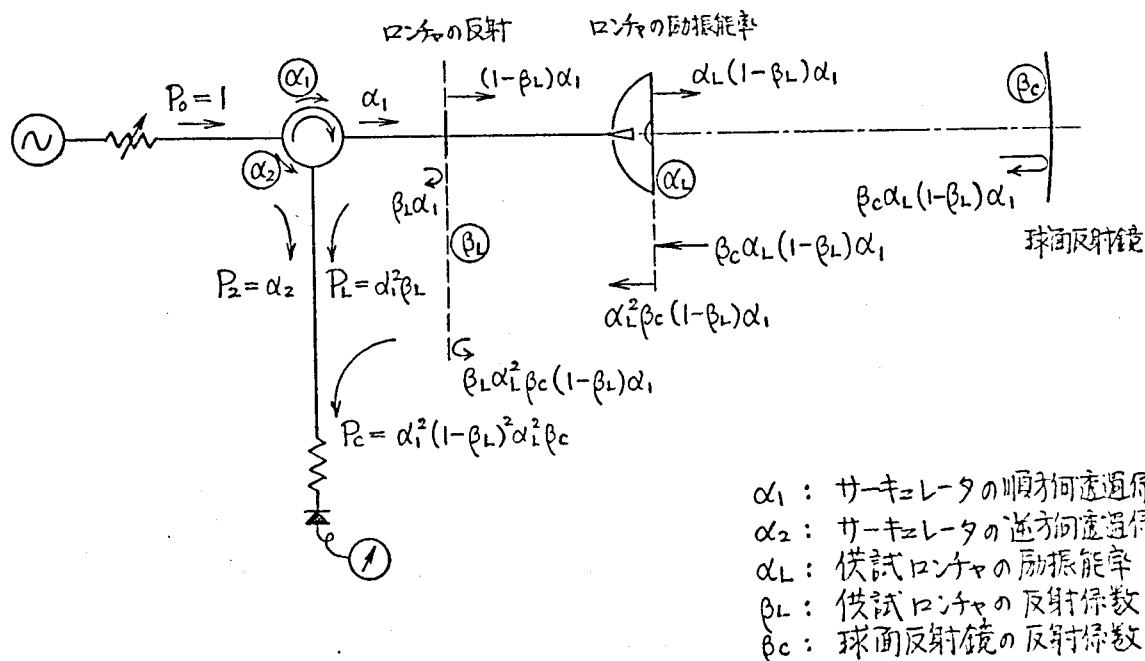 ロンチャの反射
ロンチャの励振能率
P₀=1
α₁
α₁
(1-β_L)α₁
α_L(1-β_L)α₁
β_C
α₂
β_Lα₁
β_L
α_L
β_Cα_L(1-β_L)α₁
β_Cα_L(1-β_L)α₁
球面反射鏡
P₂=α₂
P_L=α₁²β_L
α_L²β_C(1-β_L)α₁
β_Lα_L²β_C(1-β_L)α₁
P_C=α₁²(1-β_L)²α_L²β_C
α₁: サーキュレータの順方向透過
α₂: サーキュレータの逆方向透過
α_L: 供試ロンチャの励振能率
β_L: 供試ロンチャの反射係数
β_C: 球面反射鏡の反射係数